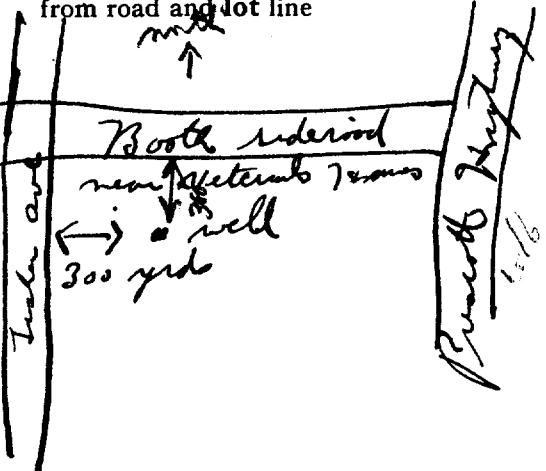 from road and lot line
north
Booth sideroad
near Veterans
300
well
300 yrds
Prescott Highway